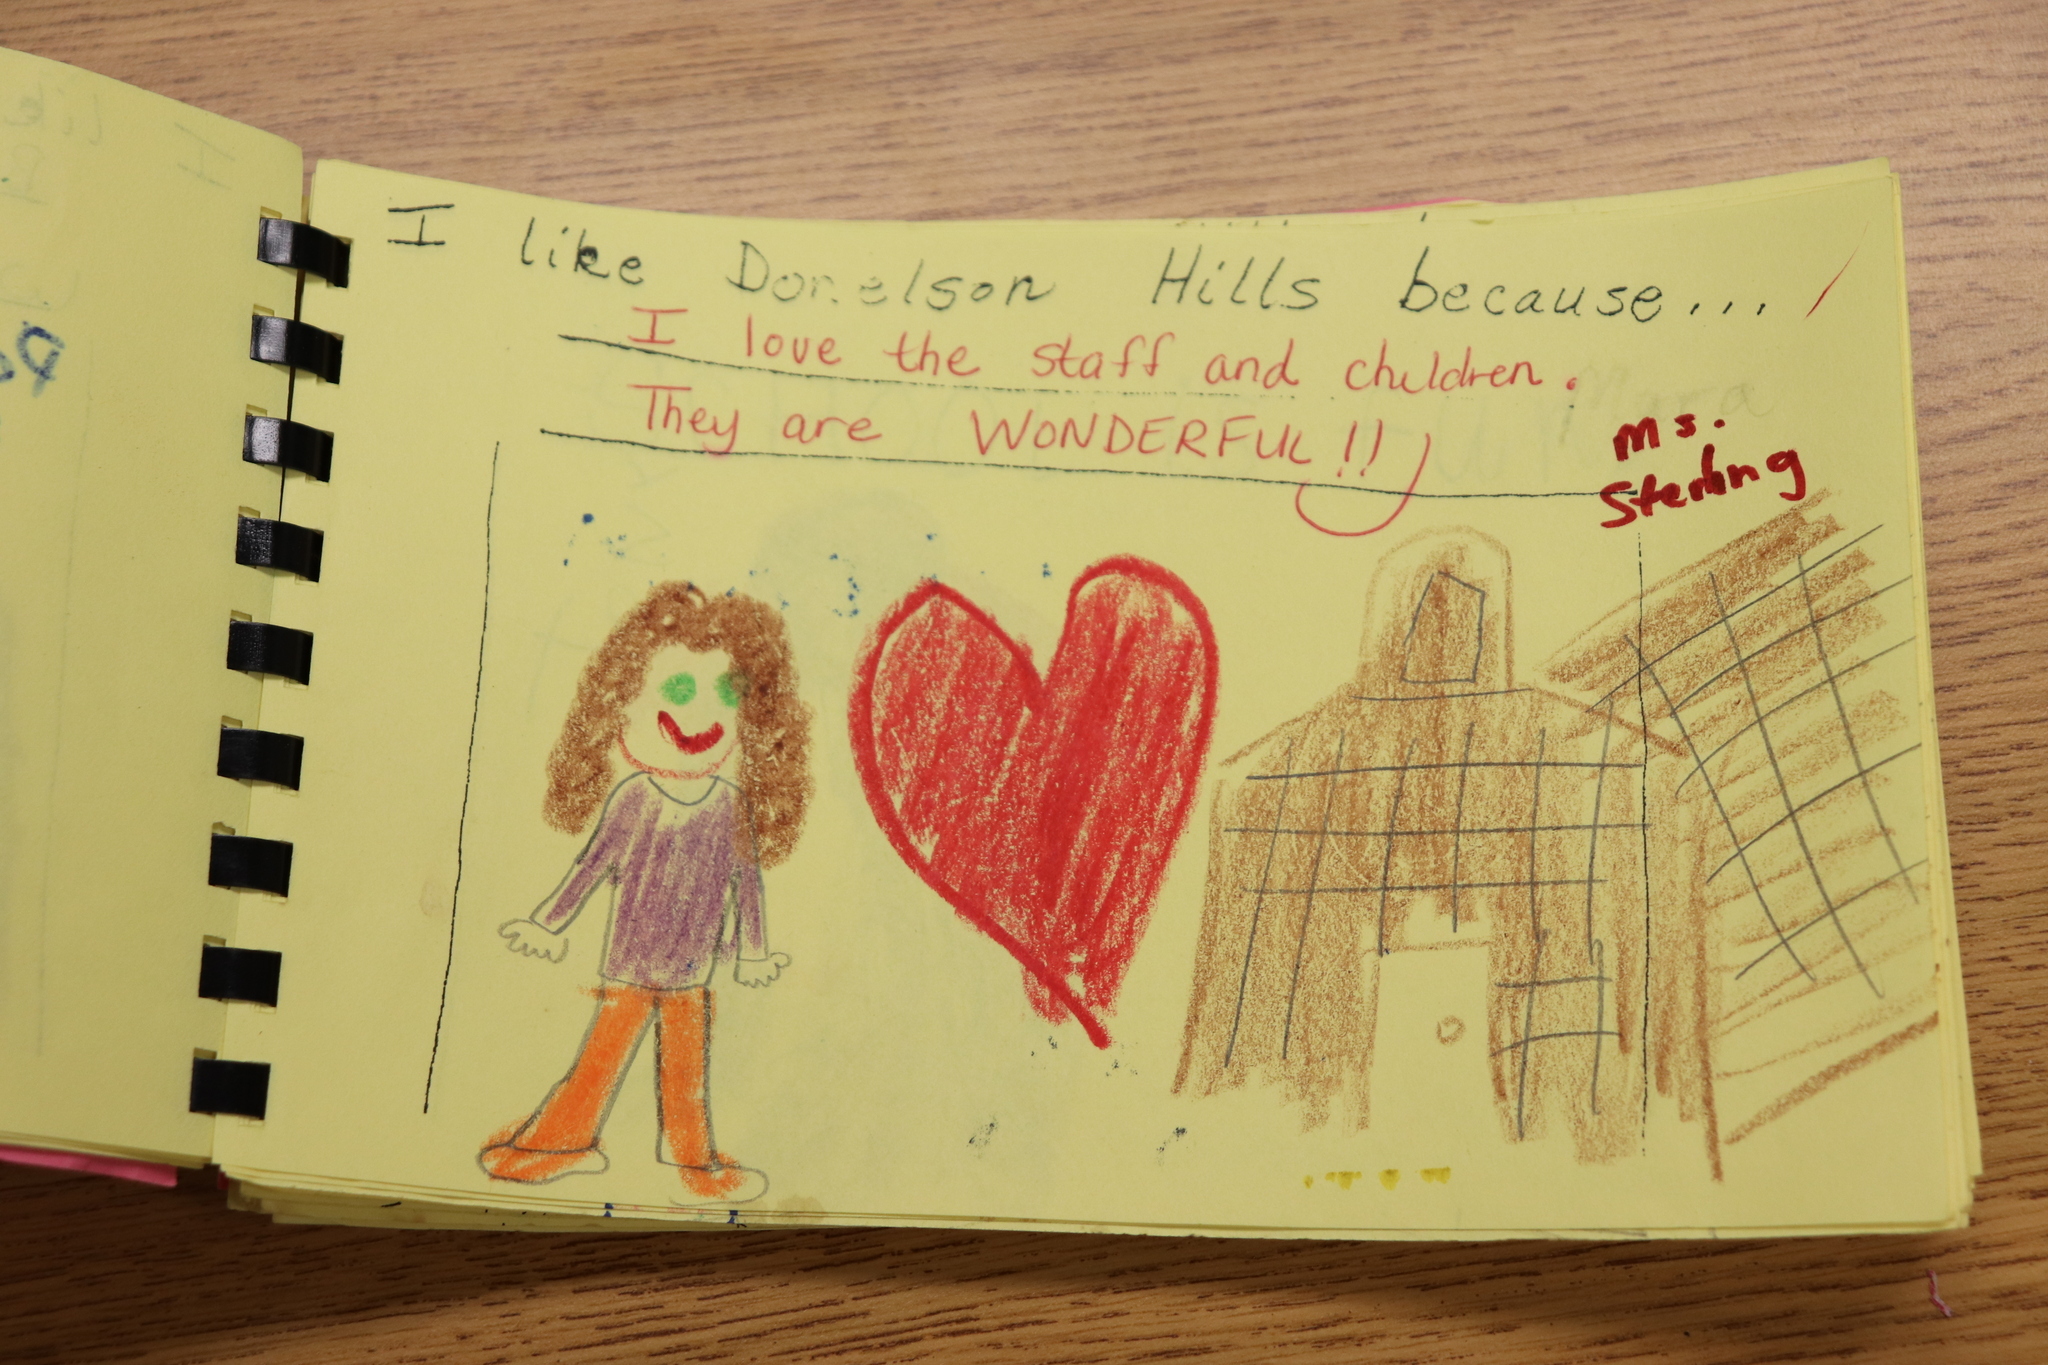 I like Donelson Hills because...
I love the staff and children.
They are WONDERFUL!!
Ms.
Sterling